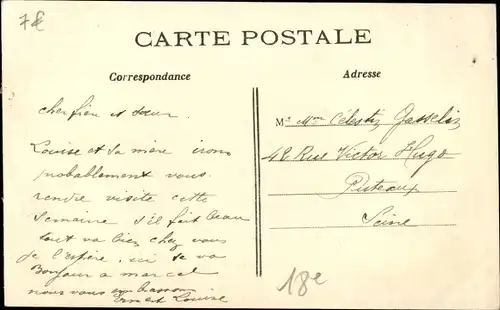 7€
CARTE POSTALE
Correspondance
Adresse
cher frère et sœur
Louise et sa mère irons
probablement vous
rendre visite cette
semaine s'il fait beau
tout va bien chez vous
je l'espère, ici se va
Bonjour a marcel
nous vous embrassons
Ernest Louise
M. Mme Célestin Gasselin
42 Rue Victor Hugo
Puteaux
Seine
18e